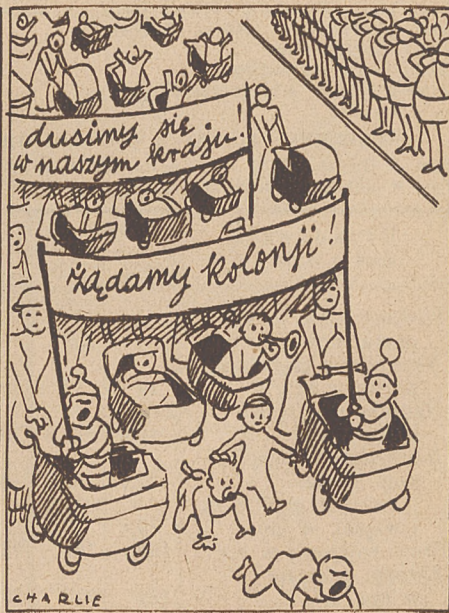 dusimy się
w naszym kraju!
Żądamy kolonji!
CHARLIE